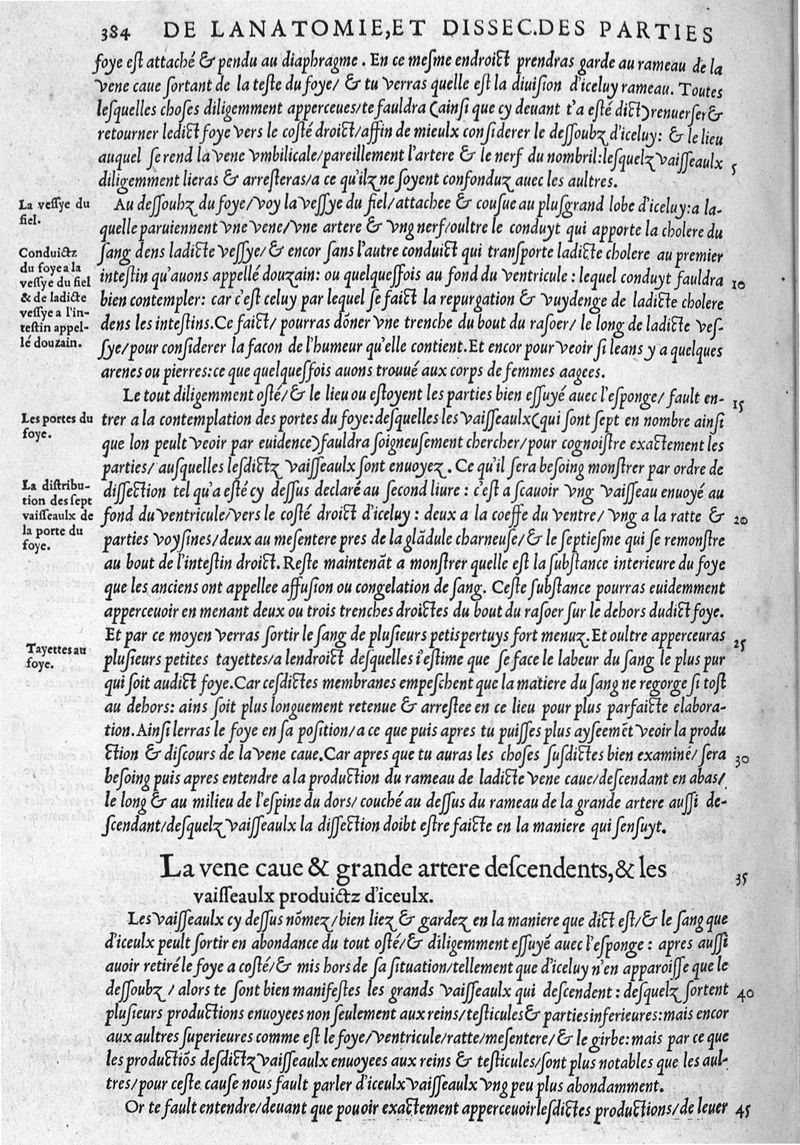 384 DE LANATOMIE, ET DISSEC. DES PARTIES
foye est attaché & pendu au diaphragme. En ce mesme endroict prendras garde au rameau de la
vene caue sortant de la teste du foye/ & tu verras quelle est la diuision d'iceluy rameau. Toutes
lesquelles choses diligemment apperceues/te fauldra (ainsi que cy deuant t'a esté dict) renuerser &
retourner ledict foye vers le costé droict/affin de mieulx considerer le dessoubz d'iceluy: & le lieu
auquel se rend la vene vmbilicale/pareillement l'artere & le nerf du nombril:lesquelz vaisseaulx
5
diligemment lieras & arresteras/a ce qu'ilz ne soyent confonduz auec les aultres.
La vessye du
fiel.
Au dessoubz du foye/voy la vessye du fiel/attachee & cousue au plusgrand lobe d'iceluy:a la-
quelle paruiennent vne vene/vne artere & vng nerf/oultre le conduyt qui apporte la cholere du
Conduictz
du foye a la
vessye du fiel
& de ladicte
vessye a l'in-
testin appel-
lé douzain.
sang dens ladicte vessye/& encor sans l'autre conduict qui transporte ladicte cholere au premier
intestin qu'auons appellé douzain: ou quelquesfois au fond du ventricule : lequel conduyt fauldra
10
bien contempler: car c'est celuy par lequel se faict la repurgation & vuydenge de ladicte cholere
dens les intestins.Ce faict/ pourras dõner vne trenche du bout du rasoer/ le long de ladicte ves-
sye/pour considerer la facon de l'humeur qu'elle contient.Et encor pour veoir si leans y a quelques
arenes ou pierres:ce que quelquesfois auons trouué aux corps de femmes aagees.
Le tout diligemment osté/& le lieu ou estoyent les parties bien essuyé auec l'esponge/ fault en-
15
Les portes du
foye.
trer a la contemplation des portes du foye:desquelles les vaisseaulx(qui sont sept en nombre ainsi
que lon peult veoir par euidence)fauldra soigneusement chercher/pour cognoistre exactement les
parties/ ausquelles lesdictz vaisseaulx sont enuoyez. Ce qu'il sera besoing monstrer par ordre de
La distribu-
tion des sept
vaisseaulx de
la porte du
foye.
dissection tel qu'a esté cy dessus declaré au second liure : c'est a scauoir vng vaisseau enuoyé au
fond du ventricule/vers le costé droict d'iceluy : deux a la coeffe du ventre/ vng a la ratte &
20
parties voysines/deux au mesentere pres de la glãdule charneuse/& le septiesme qui se remonstre
au bout de l'intestin droict. Reste maintenãt a monstrer quelle est la substance interieure du foye
que les anciens ont appellee affusion ou congelation de sang. Ceste substance pourras euidemment
apperceuoir en menant deux ou trois trenches droictes du bout du rasoer sur le dehors dudict foye.
Et par ce moyen verras sortir le sang de plusieurs petis pertuys fort menuz.Et oultre apperceuras
25
Tayettes au
foye.
plusieurs petites tayettes/a lendroict desquelles i'estime que se face le labeur du sang le plus pur
qui soit audict foye.Car cesdictes membranes empeschent que la matiere du sang ne regorge si tost
au dehors: ains soit plus longuement retenue & arrestee en ce lieu pour plus parfaicte elabora-
tion.Ainsi lerras le foye en sa position/a ce que puis apres tu puisses plus ayseemẽt veoir la produ
ction & discours de la vene caue.Car apres que tu auras les choses susdictes bien examiné/ sera
30
besoing puis apres entendre a la production du rameau de ladicte vene caue/descendant en abas/
le long & au milieu de l'espine du dors/ couché au dessus du rameau de la grande artere aussi de-
scendant/desquelz vaisseaulx la dissection doibt estre faicte en la maniere qui sensuyt.
La vene caue & grande artere descendents, & les
35
vaisseaulx produictz d'iceulx.
Les vaisseaulx cy dessus nõmez/bien liez & gardez en la maniere que dict est/& le sang que
d'iceulx peult sortir en abondance du tout osté/& diligemment essuyé auec l'esponge : apres aussi
auoir retiré le foye a costé/& mis hors de sa situation/tellement que d'iceluy n'en apparoisse que le
dessoubz/ alors te sont bien manifestes les grands vaisseaulx qui descendent : desquelz sortent
40
plusieurs productions enuoyees non seulement aux reins/testicules & parties inferieures:mais encor
aux aultres superieures comme est le foye/ventricule/ratte/mesentere/& le girbe:mais par ce que
les productiõs desdictz vaisseaulx enuoyees aux reins & testicules/sont plus notables que les aul-
tres/pour ceste cause nous fault parler d'iceulx vaisseaulx vng peu plus abondamment.
Or te fault entendre/deuant que pouoir exactement apperceuoir lesdictes productions/de leuer
45